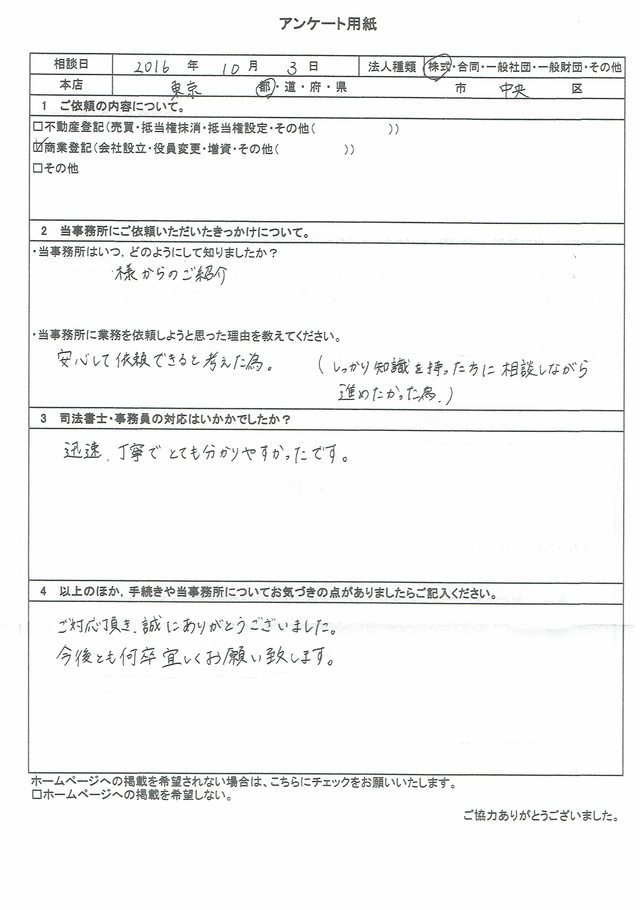 アンケート用紙
相談日 2016 年 10 月 3 日 法人種類 株式・合同・一般社団・一般財団・その他
本店 東京 都・道・府・県 市 中央 区
1 ご依頼の内容について。
□不動産登記(売買・抵当権抹消・抵当権設定・その他( ))
☑商業登記(会社設立・役員変更・増資・その他( ))
□その他
2 当事務所にご依頼いただいたきっかけについて。
・当事務所はいつ，どのようにして知りましたか？
様からのご紹介
・当事務所に業務を依頼しようと思った理由を教えてください。
安心して依頼できると考えた為。 (しっかり知識を持った方に相談しながら
進めたかった為。)
3 司法書士・事務員の対応はいかかでしたか？
迅速、丁寧でとても分かりやすかったです。
4 以上のほか，手続きや当事務所についてお気づきの点がありましたらご記入ください。
ご対応頂き、誠にありがとうございました。
今後とも何卒宜しくお願い致します。
ホームページへの掲載を希望されない場合は、こちらにチェックをお願いいたします。
□ホームページへの掲載を希望しない。
ご協力ありがとうございました。